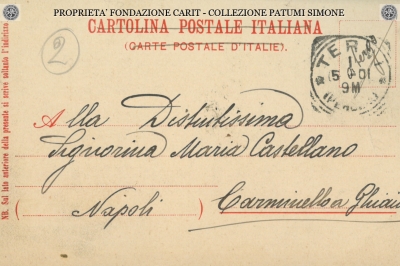 PROPRIETA' FONDAZIONE CARIT - COLLEZIONE PATUMI SIMONE
CARTOLINA POSTALE ITALIANA
(CARTE POSTALE D'ITALIE).
2
TERNI
5 01
9M
(PERUGIA)
Alla Distintissima
Signorina Maria Castellano
(Napoli) Carminello a Chiaia
NB. Sul lato anteriore della presente si scrive soltanto l'indirizzo.